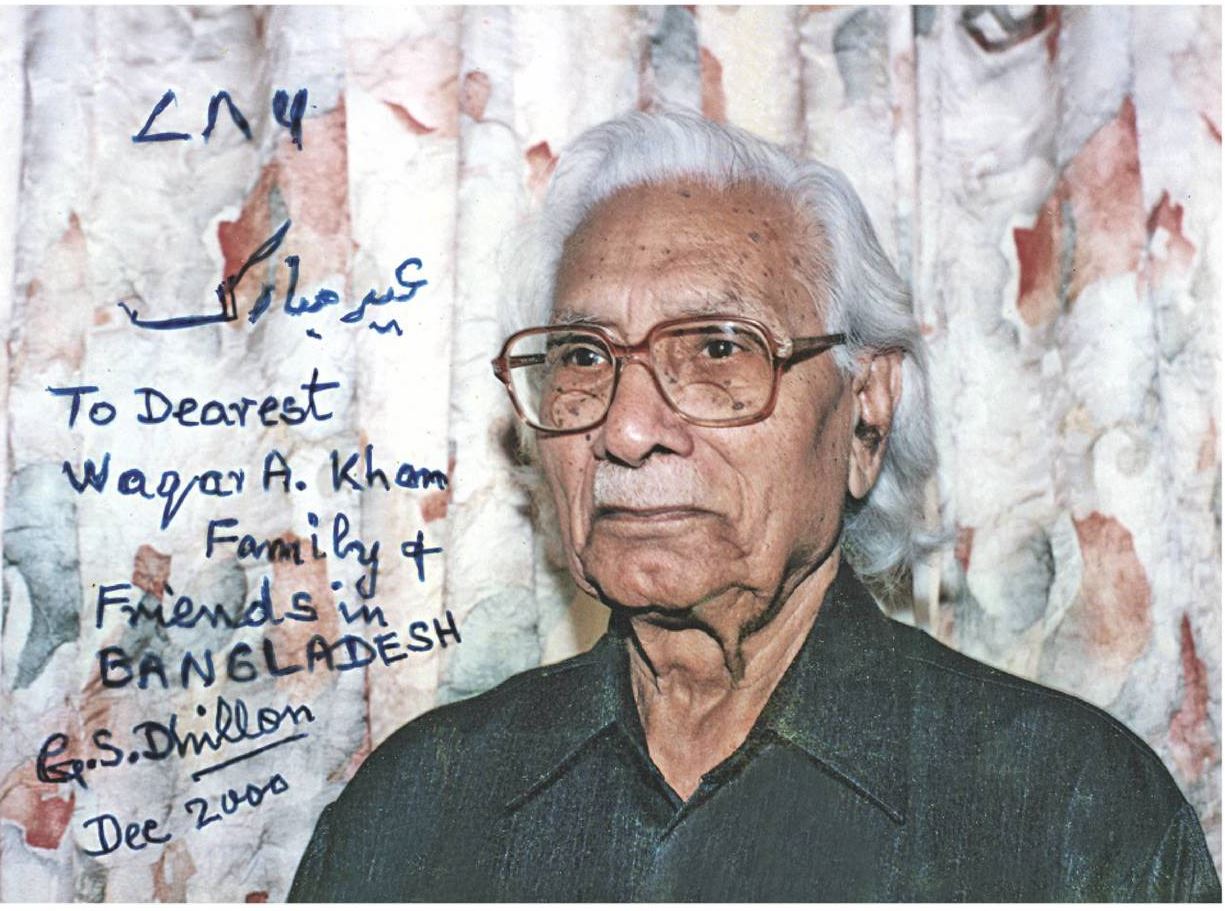 ۷۸۶
عید مبارک
To Dearest
Waqar A. Khan
Family &
Friends in
BANGLADESH
G.S. Dhillon
Dec 2000